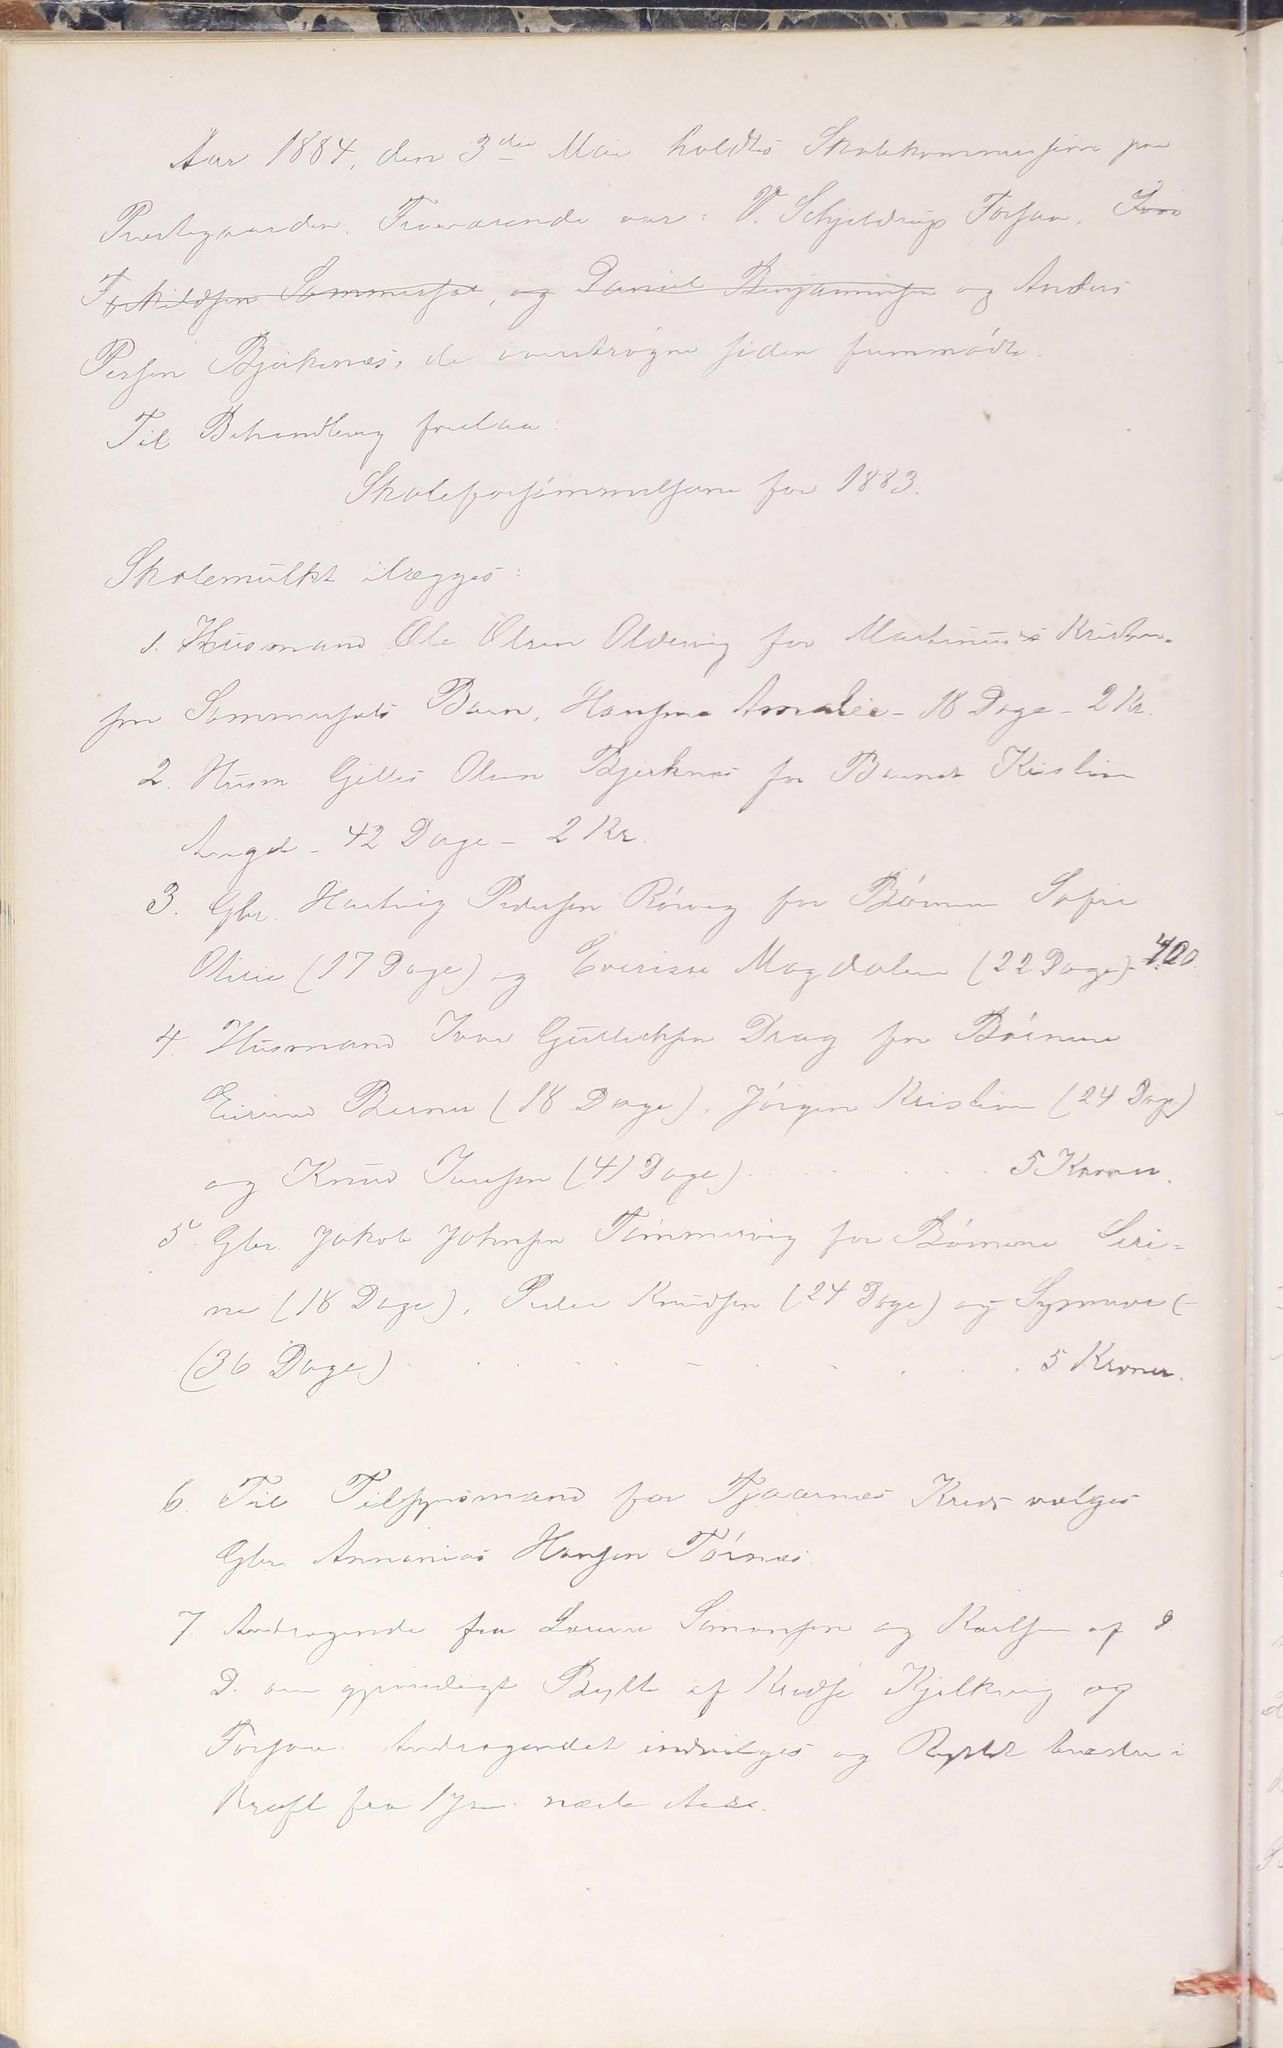 Aar 1884, den 3die Mai holdtes Skolekommission paa
Præstegaarden. Fraværende var: V. Schjeldrup Forsaa, Iver
Torkildsen Sommerset, og Daniel Benjaminsen og Anders
Persen Bjerknæs, de overstrøgne siden fremmødte.
Til Behandling forelaa:
Skoleforsømmelserne for 1883.
Skolemulkt ilægges:
1. Husmand Ole Olsen Oldervig for Martinus Kristen-
sen Sommersets Barn, Hansine Amalie - 18 Dage - 2 Kr.
2. Husm. Gilles Olsen Bjerknæs for Barnet Kristine
42 Dage - 2 Kr.
3. Gbr. Hartvig Pedersen Rørvig for Børnene Sofie
(17 Dage) og Magdalene (22 Dage) - 4,00
4. Husmand Iver Gullichsen Drag for Børnene
Berner (18 Dage), Jørgen Kristian (24 Dage)
og Knud (41 Dage) . . . . 5 Kroner.
5. Gbr. Jakob Johnsen Tømmervig for Børnene Seri-
ne (18 Dage), Peder Knudsen (24 Dage) og Synnøve (-
(36 Dage) . . . . . . . . . . . 5 Kroner.
6. Til Tilsynsmand for Tjaarnes Kreds vælges
Gbr Annanias Hansen Tørnæs.
7. Andragende fra Simonsen og Karlsen af d.
D. om gjensidigt Bytte af Kredse Kjelkvig og
Forsaa. Andragendet indvilges og Byttet træder i
Kraft fra 1 Jan. næste Aar.